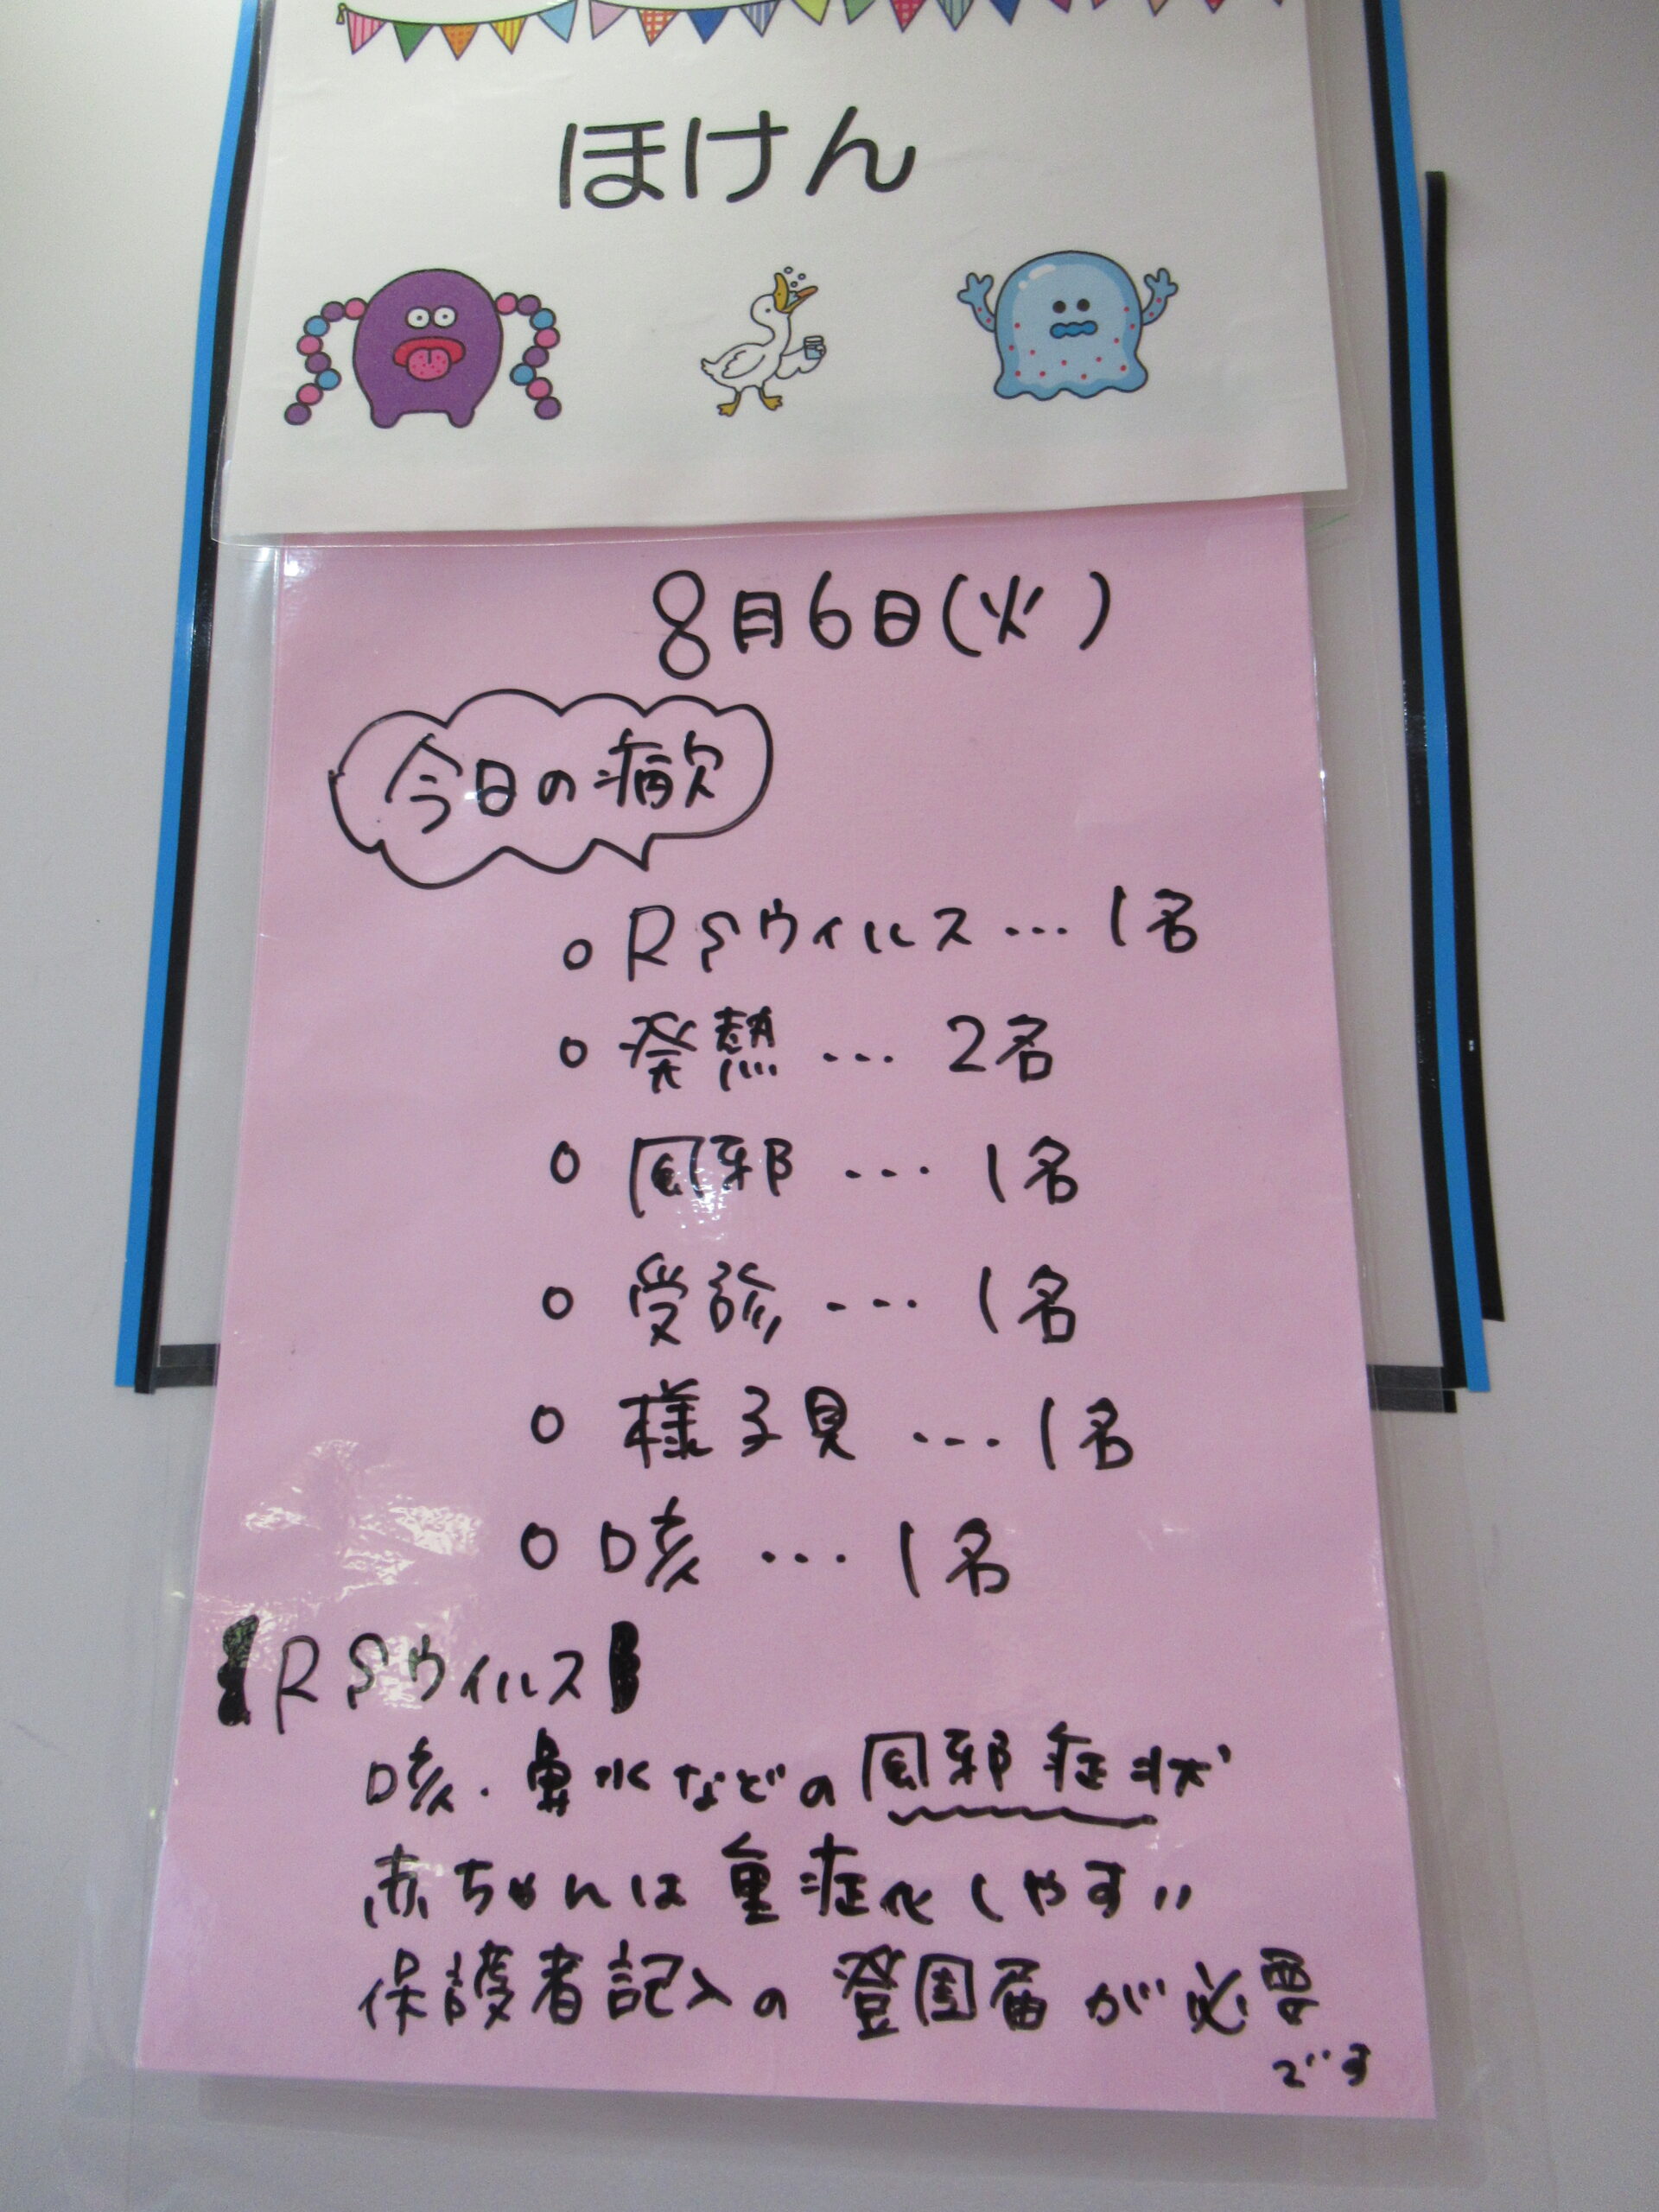 ほけん
8月6日(火)
今日の病欠
○ RSウイルス…1名
○ 発熱…2名
○ 風邪…1名
○ 受診…1名
○ 様子見…1名
○ 咳…1名
【RSウイルス】
咳・鼻水などの風邪症状
赤ちゃんは重症化しやすい
保護者記入の登園届が必要
です